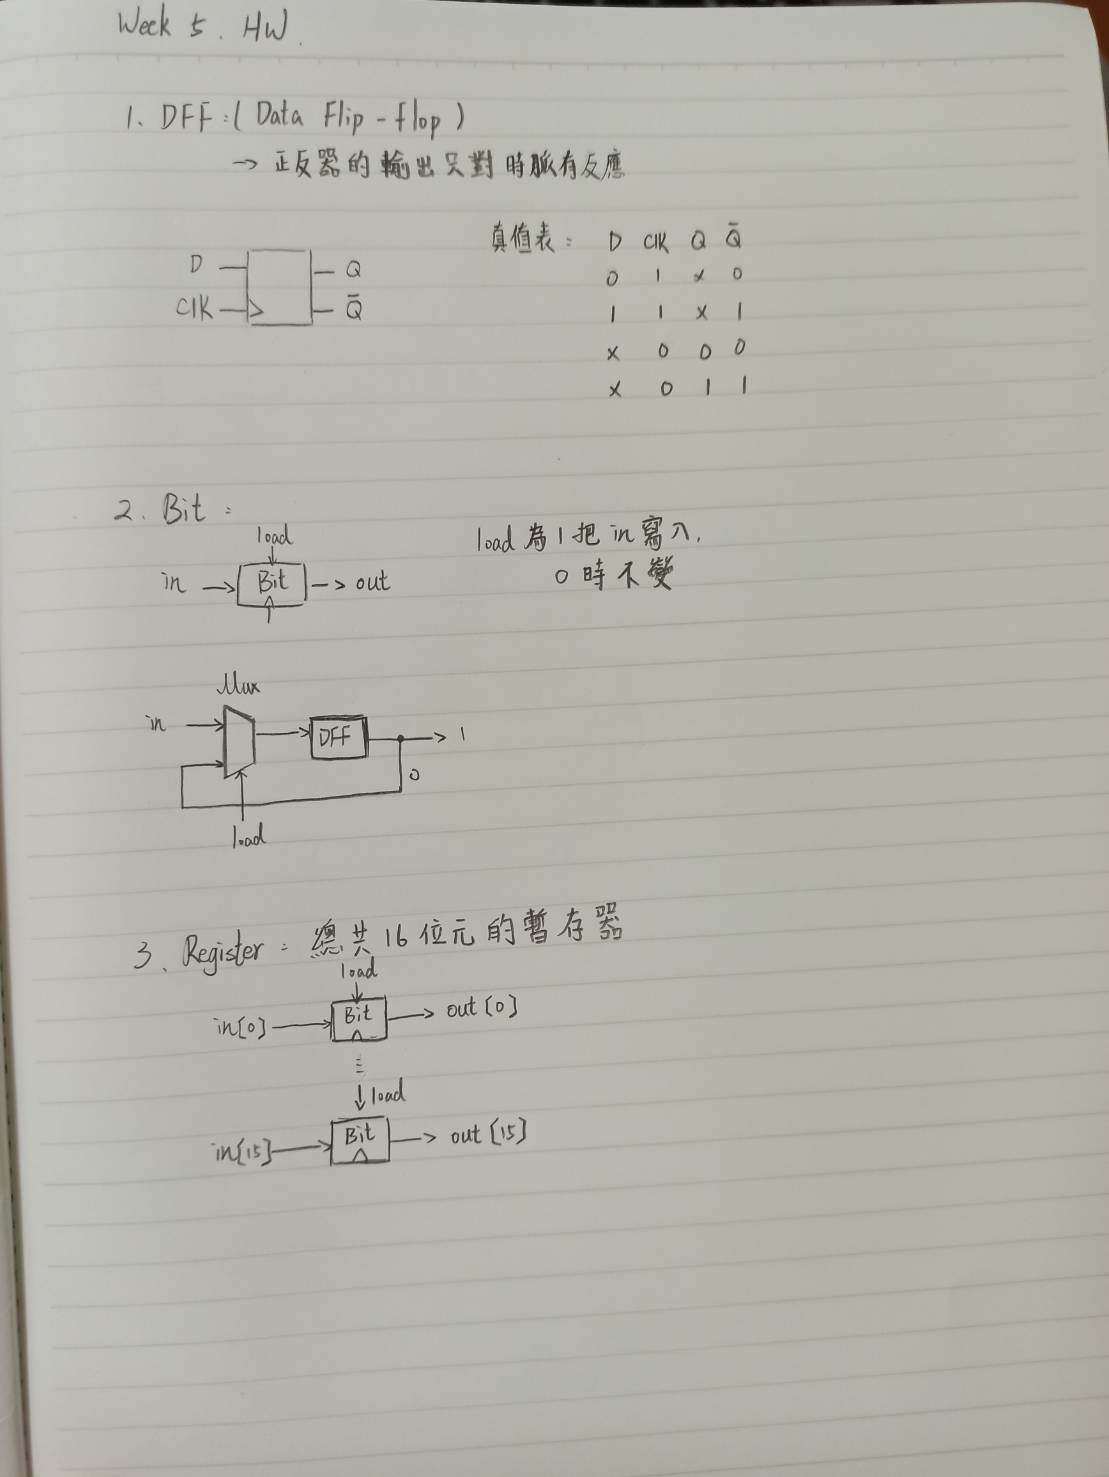 Week 5. HW.
1. DFF:( Data Flip-flop)
→ 正反器的輸出只對時脈有反應
真值表: D CLK Q Q̅
0 1 x 0
1 1 x 1
x 0 0 0
x 0 1 1
D Q
CLK Q̅
2. Bit:
load
in → Bit → out
load 為 1 把 in 寫入,
0 時不變
Mux
in DFF 1
0
load
3. Register: 總共16位元的暫存器
load
in[0] → Bit → out[0]
⋮
↓load
in[15] → Bit → out[15]